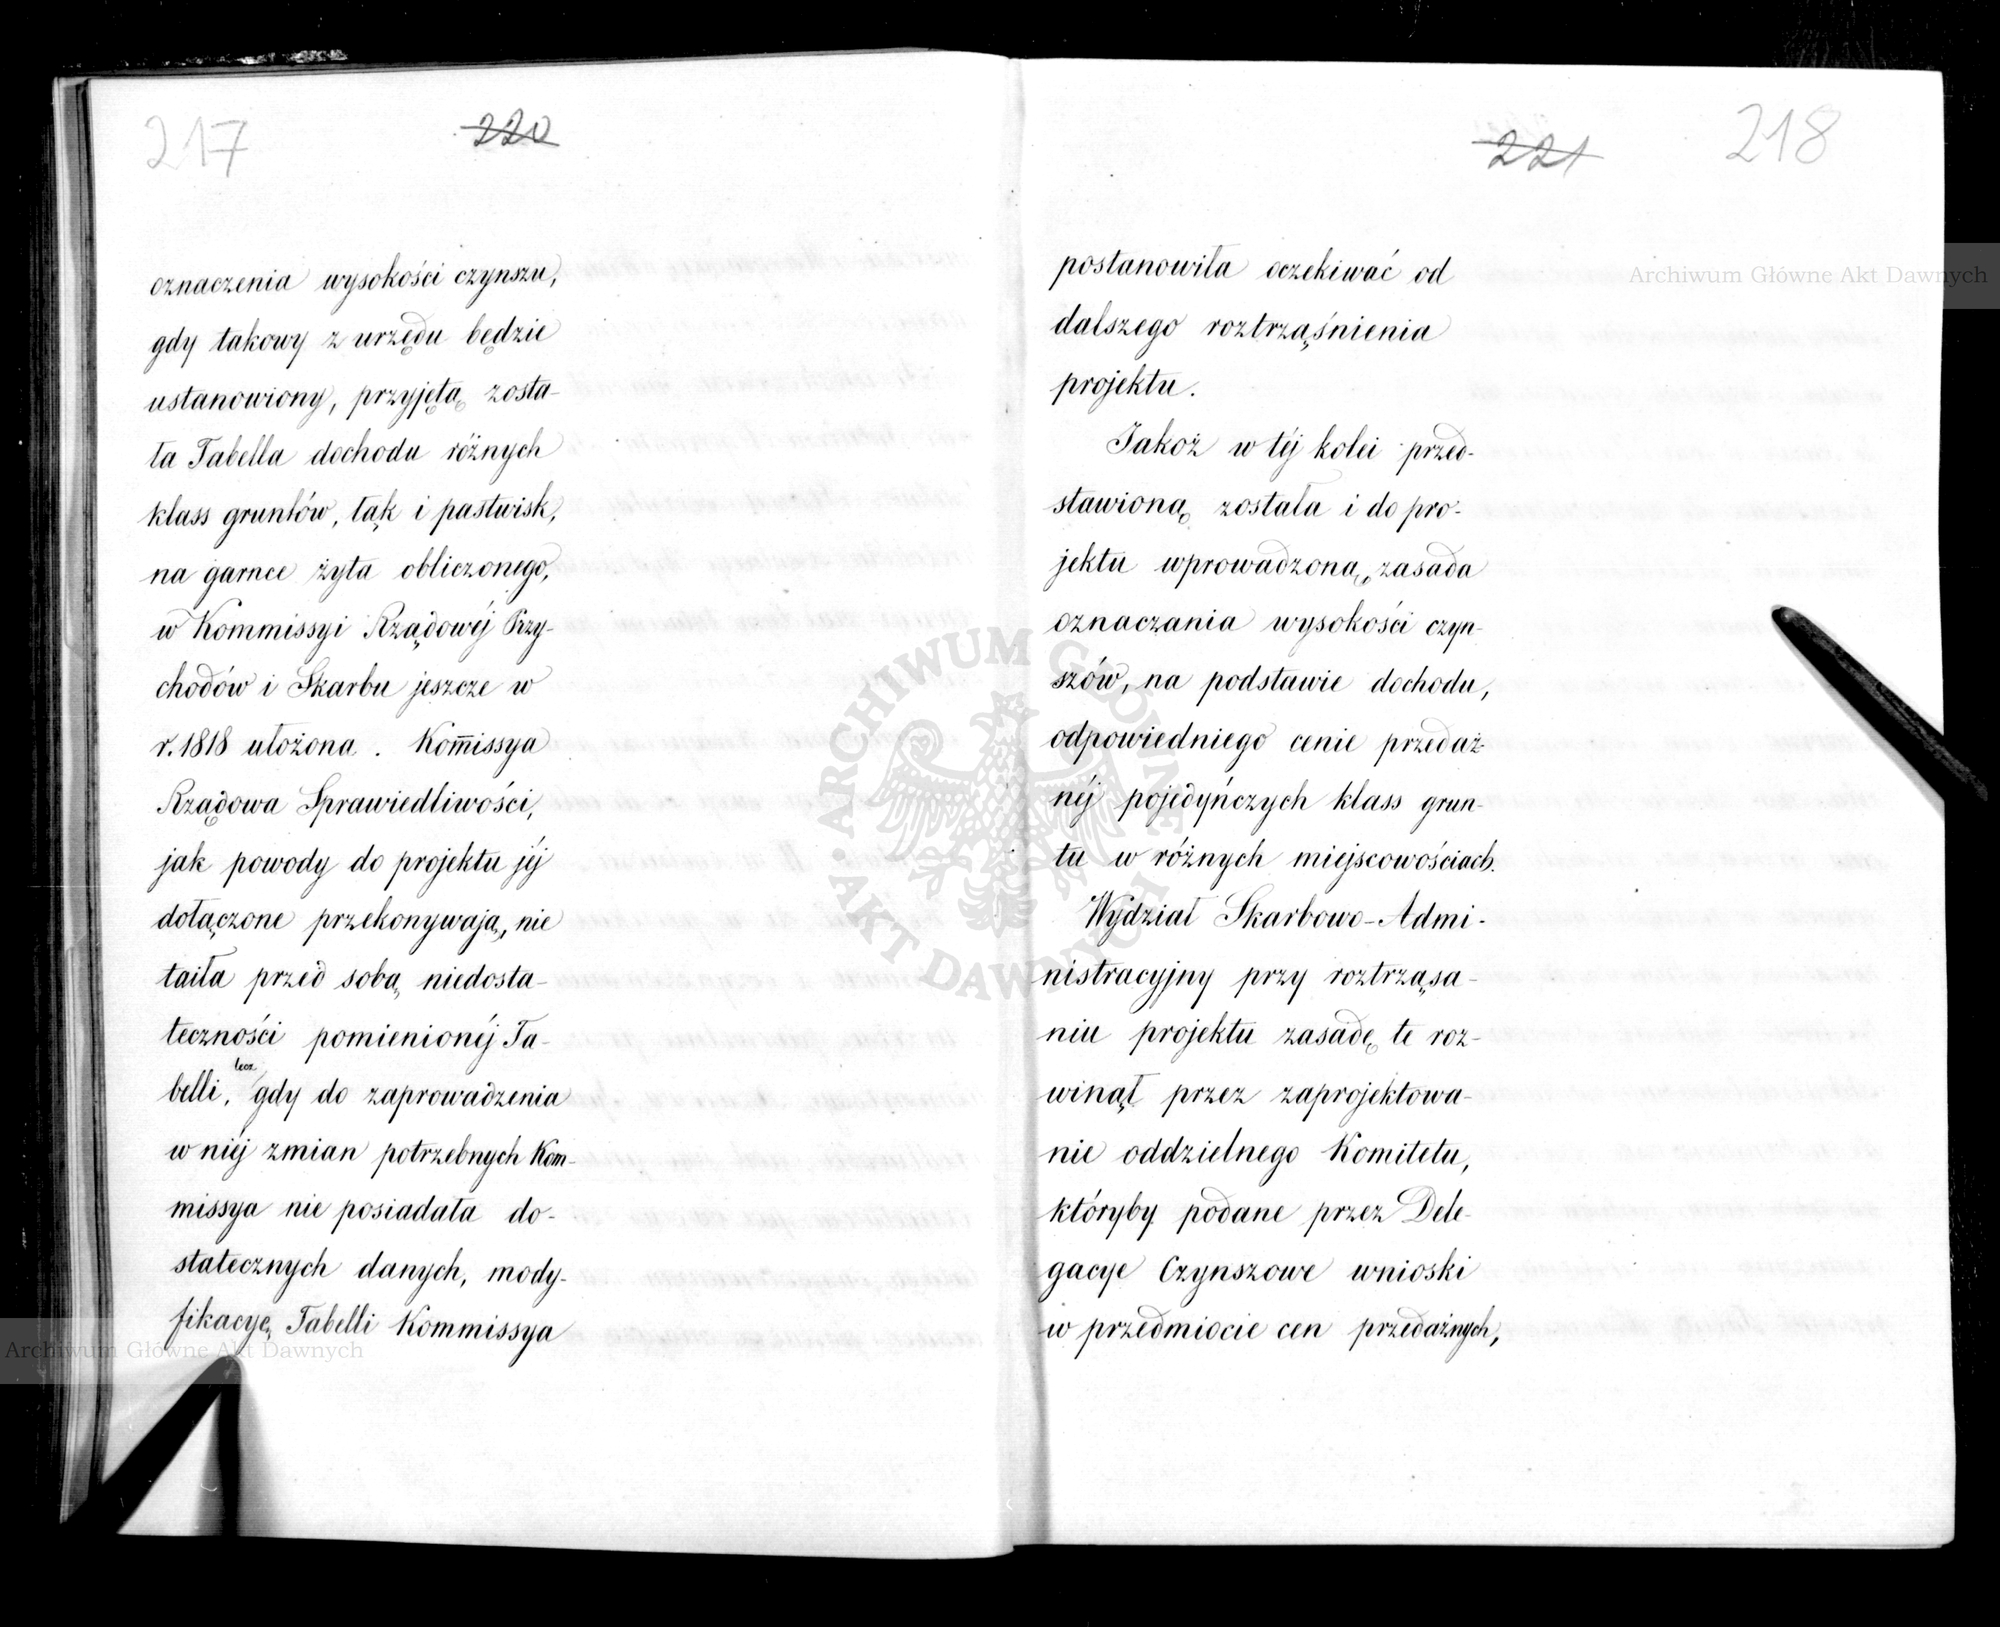 217
220
oznaczenia wysokości czynszu,
gdy takowy z urzędu będzie
ustanowiony, przyjętą zosta-
ła Tabella dochodu różnych
klass gruntów, łąk i pastwisk,
na garnce żyta obliczonego,
w Kommissyi Rządowéj Przy-
chodów i Skarbu jeszcze w
r. 1818 ułożona. Kom̄issya
Rządowa Sprawiedliwości,
jak powody do projektu jéj
dołączone przekonywają, nie
taiła przed sobą niedosta-
teczności pomienionéj Ta-
belli, lecz gdy do zaprowadzenia
w niéj zmian potrzebnych Kom-
missya nie posiadała do-
statecznych danych, mody-
fikacyę Tabelli Kommissya
221
218
postanowiła oczekiwać od
dalszego roztrząśnienia
projektu.
Jakoż w téj kolei przed-
stawioną została i do pro-
jektu wprowadzoną, zasada
oznaczania wysokości czyn-
szów, na podstawie dochodu,
odpowiedniego cenie przedaż-
néj pojedyńczych klass grun-
tu w różnych miejscowościach.
Wydział Skarbowo-Admi-
nistracyjny przy roztrząsa-
niu projektu zasadę te roz-
winął przez zaprojektowa-
nie oddzielnego Komitetu,
któryby podane przez Dele-
gacye Czynszowe wnioski
w przedmiocie cen przedażnych,
Archiwum Główne Akt Dawnych
Archiwum Główne Akt Dawnych
ARCHIWUM GŁÓWNE AKT DAWNYCH